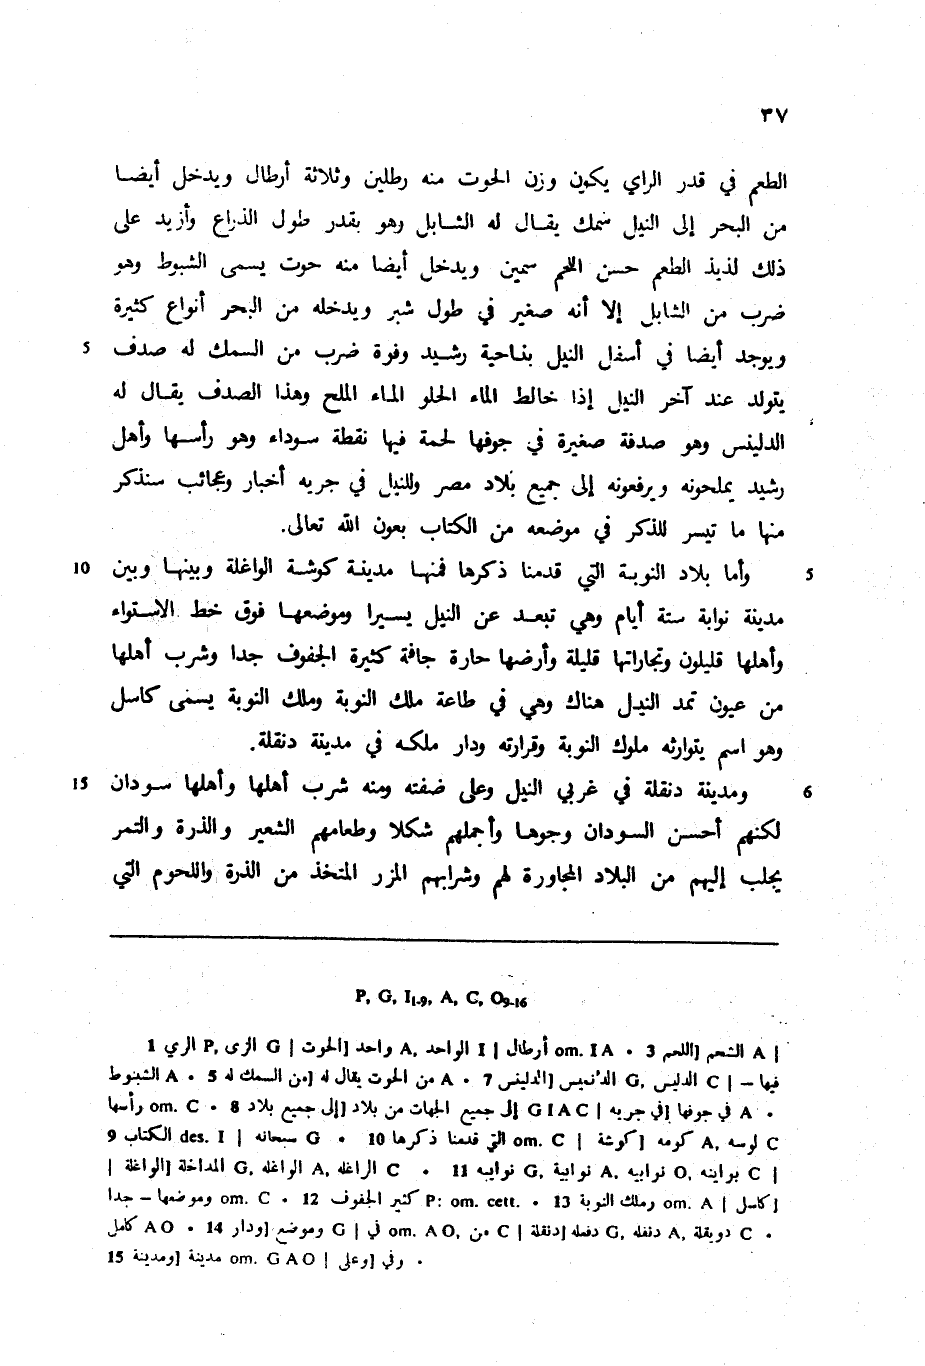 ٣٧
الطعم في قدر الراي يكون وزن الحوت منه رطلين وثلاثة أرطال ويدخل أيضا
من البحر إلى النيل سمك يقال له الشابل وهو بقدر طول الذراع وأزيد على
ذلك لذيذ الطعم حسن اللحم سمين ويدخل أيضا منه حوت يسمى الشبوط وهو
ضرب من الشابل إلا أنه صغير في طول شبر ويدخله من البحر أنواع كثيرة
5 ويوجد أيضا في أسفل النيل بناحية رشيد وفوة ضرب من السمك له صدف
يتولد عند آخر النيل إذا خالط الماء الحلو الماء الملح وهذا الصدف يقال له
الدلينس وهو صدفة صغيرة في جوفها لحمة فيها نقطة سوداء وهو رأسها وأهل
رشيد يملحونه ويرفعونه إلى جميع بلاد مصر وللنيل في جريه أخبار وعجائب سنذكر
منها ما تيسر للذكر في موضعه من الكتاب بعون الله تعالى.
5 وأما بلاد النوبة التي قدمنا ذكرها فمنها مدينة كوشة الواغلة وبينها وبين 10
مدينة نوابة ستة أيام وهي تبعد عن النيل يسيرا وموضعها فوق خط الاستواء
وأهلها قليلون وتجاراتها قليلة وأرضها حارة جافة كثيرة الجفوف جدا وشرب أهلها
من عيون تمد النيل هناك وهي في طاعة ملك النوبة وملك النوبة يسمى كاسل
وهو اسم يتوارثه ملوك النوبة وقرارته ودار ملكه في مدينة دنقلة.
6 ومدينة دنقلة في غربي النيل وعلى ضفته ومنه شرب أهلها وأهلها سودان 15
لكنهم أحسن السودان وجوها وأجملهم شكلا وطعامهم الشعير والذرة والتمر
يجلب إليهم من البلاد المجاورة لهم وشرابهم المزر المتخذ من الذرة واللحوم التي
P, G, I1-9, A, C, O9-16
1 الري P, الزى G | الحوت] واحد A, الواحد I | أرطال om. I A • 3 اللحم] الشحم A |
الشبوط A • 5 من السمك له] من الحوت يقال له A • 7 الدلينس] G, الدليس C | فيها –
رأسها om. C • 8 إلى جميع بلاد] إلى جميع الجهات من بلاد G I A C | في جريه] في جوفها A •
9 الكتاب des. I | سبحانه G • 10 التي قدمنا ذكرها om. C | كوشة] كومه A, لوسه C
| الواغلة] المداخلة G, الواغله A, الراغله C • 11 نوابة] نوابيه G, نوابية A, نرابيه O, بوابته C |
وموضعها – جدا om. C • 12 كثير الجفوف P: om. cett. • 13 وملك النوبة om. A | كاسل]
كامل A O • 14 ودار] وموضع G | في om. A O, من C | دنقلة] دمقله G, دنقله A, دويقلة C •
15 ومدينة] مدينة om. G A O | وعلى] وفي •